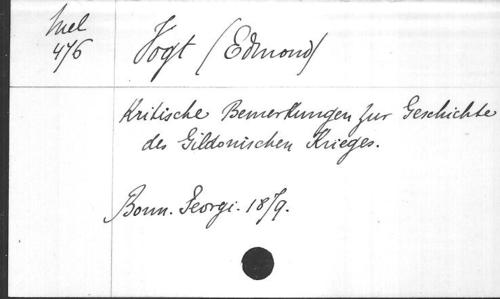 Mel
476
Vogt (Edmond)
Kritische Bemerkungen zur Geschichte
des Gildonischen Krieges.
Bonn. Georgi. 1879.